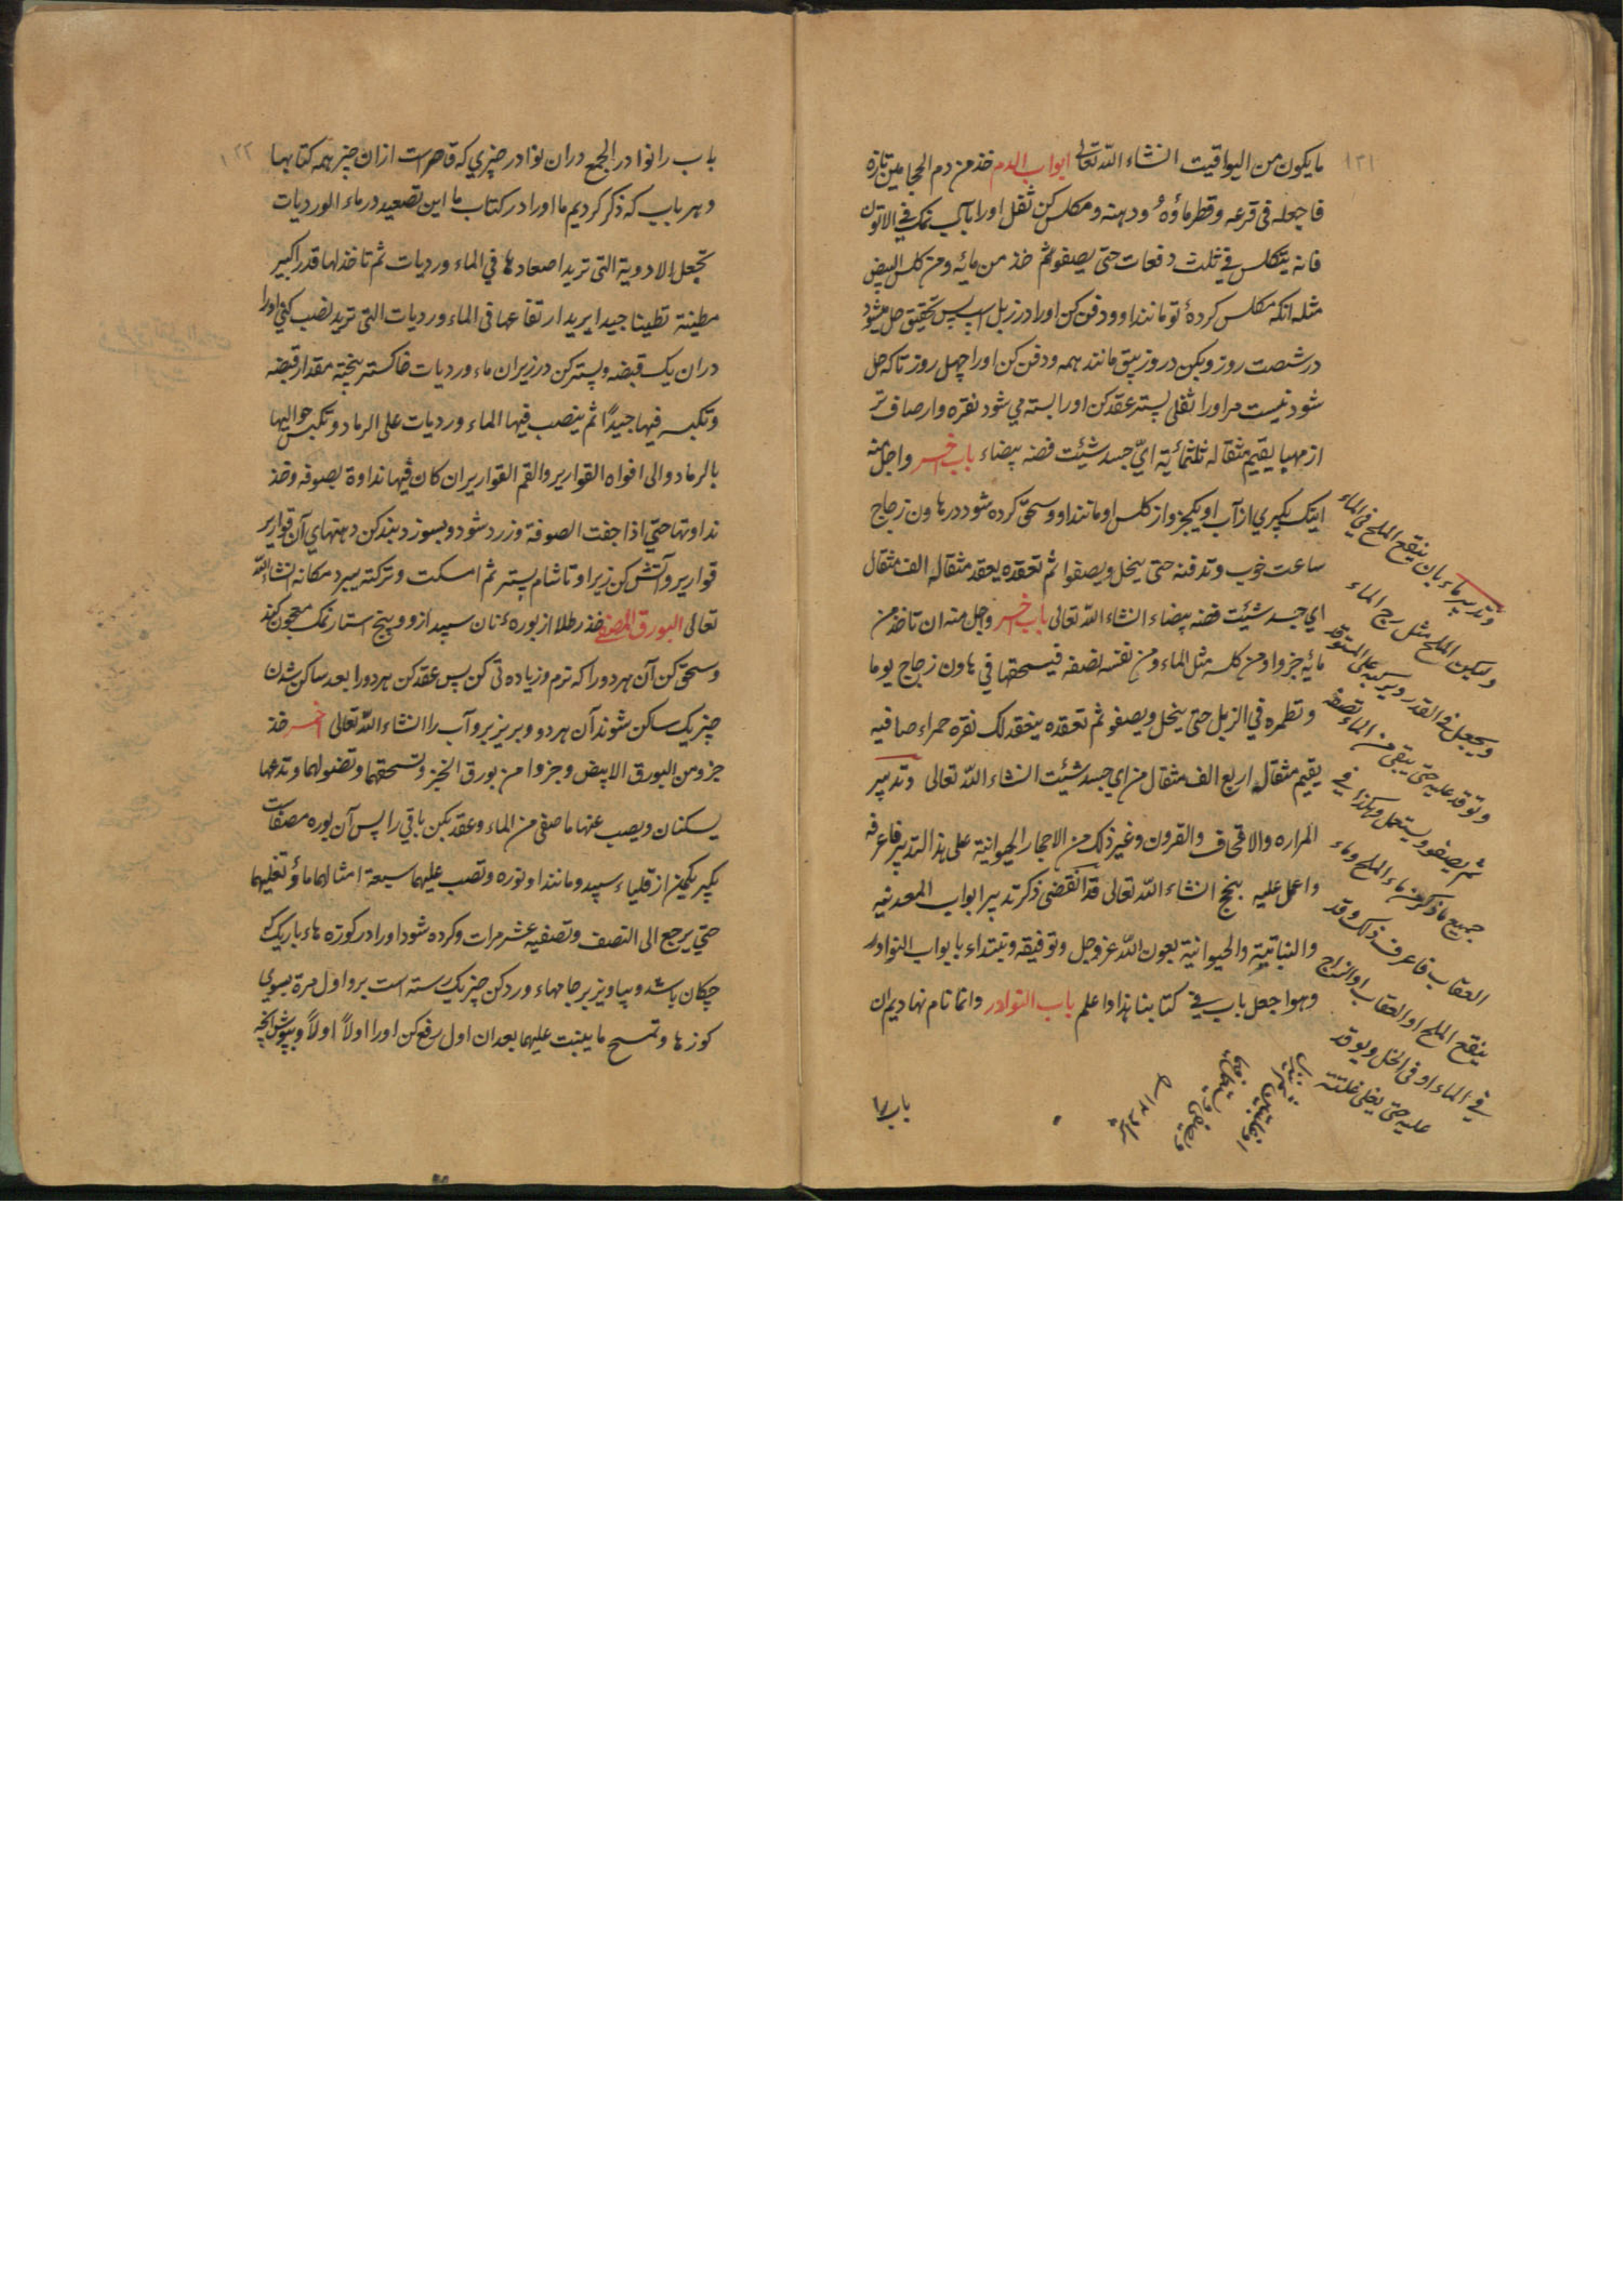 ١٢١
ما يكون من اليواقيت انشاء الله تعالى ابواب الدم خذ من دم الحجامين تازه
فاجعله فى قرعه وقطر ماؤه ودهنه ومكلس كن ثفل اورا بآب نمك فى الاتون
فانه يتكلس فى ثلث دفعات حتى يصفو ثم خذ من مائه ومن كلس البيض
مثله انكه مكلس كردهٔ تو مانند او ودفن كن اورا در زبل پس بتحقيق حل ميشود
در شصت روز وبكن در وزيبق مانند همه ودفن كن اورا چهل روز تاكه حل
شود نيست مر اورا ثفلى پستر عقد كن اورا بسته مى شود نقره وار صاف تر
از مها يقيم مثقاله ثلثمائية اىّ جسد شئت فضه بيضاء باب اخر واجل منه
اينك بگيرى از آب او يكجزو از كلس او مانند او وسحق كرده شود در هاون زجاج
ساعت خوب وتدفنه حتى ينحل ويصفوا ثم تعقده يعقد مثقاله الف مثقال
اي جسد شئت فضه بيضاء انشاء الله تعالى باب اخر واجل منه ان تاخذ من
مائه جزوا ومن كلسه مثل الماء ومن نفسه نصفه فيسحقها في هاون زجاج يوما
وتطمره في الزبل حتى ينحل ويصفو ثم تعقده ينعقد لك نقره حمراء صافيه
يقيم مثقال اربع الف مثقال من اي جسد شئت انشاء الله تعالى وتدبير
المراره والاقحاف والقرون وغير ذلك من الاحجار الحيوانية على هذا التدبير فاعرفه
واعمل عليه ينجح انشاء الله تعالى قد انقضى ذكر تدبير ابواب المعدنيه
والنباتية والحيوانية بعون الله عز وجل وتوفيقه ونبتداء بابواب النوادر
وهو اجعل باب فى كتابنا هذا واعلم باب النوادر وانما نام نهاديم ان
وتدبير ماء بان ينقع الملح في الماء
وليكن الملح مثل ربع الماء
ويجعل فى القدر ويركبه على المستوقد
وتوقد عليه حتى يبقى من الماء نصفه
ثم يصفو ويستعمل وهكذا فى
جميع ما ذكر من ماء الملح وماء
العقاب فاعرف ذلك وقد
ينقع الملح او العقاب او الزاج
في الماء او فى الخل ويوقد
عليه حتى يغلى غلية
باب را
١٢٢
باب را نوادر الجمع دران نوادر چيزي كه قاصر است ازان چيز همه كتابها
وهر باب كه ذكر كرديم ما اورا در كتاب ما اين تصعيد در ماء الورديات
تجعل الادوية التى تريد اصعادها في الماء ورديات ثم تاخذ لها قدرا كبير
مطينة تطينا جيدا يريد ارتفاعها فى الماء ورديات التى تريد نصب كنى اورا
دران يك قبضه وپستر كن در زيران ماء ورديات خاكستر پخته مقدار قبضه
وتكبسه فيها جيدًا ثم ينصب فيها الماء ورديات على الرماد وتكبس حواليها
بالرماد والى افواه القوارير والقم القوارير ان كان فيها نداوة بصوفه وخذ
نداوتها حتى اذا جفت الصوفة وزرد شود وبسوزد بند كن دهنهاي آن قوارير
قوارير وآتش كن زير او تا شام پستر ثم امسكت وتركته يبرد مكانه انشاء الله
تعالى البورق المصفى خذ رطلا از بورهٔ نان سپيد ازو وپنج استار نمك معجون كند
وسحق كن آن هر دو را كه نرم وزياده تى كن پس عقد كن هر دورا بعد ساكن شدن
چيزيك ساكن شوند آن هر دو وبريز برو آب را انشاء الله تعالى اخر خذ
جزو من البورق الابيض وجزوا من بورق الخبز وتسحقهما وتضنولهما وتدعها
يسكنان ويصب عنها ما صفى من الماء وعقد بكن باقي را پس آن بوره مصفات
بگير يكجز از قلياء سپيد ومانند او نوره وتصب عليهما سبعة امثالهما ماؤ تغليهما
حتي يرجع الى النصف وتصفيه عشر مرات وكرده شود اورا در كوزه هاء باريك كه
چكان باشد وبياويز بر جامهاء ورد كن چيزيك رسته است برو اول مرة بسوي
كوزها وتمسح ما يبنت عليهما بعد ان اول رفع كن اورا اولاً اولاً وبپوش انچه